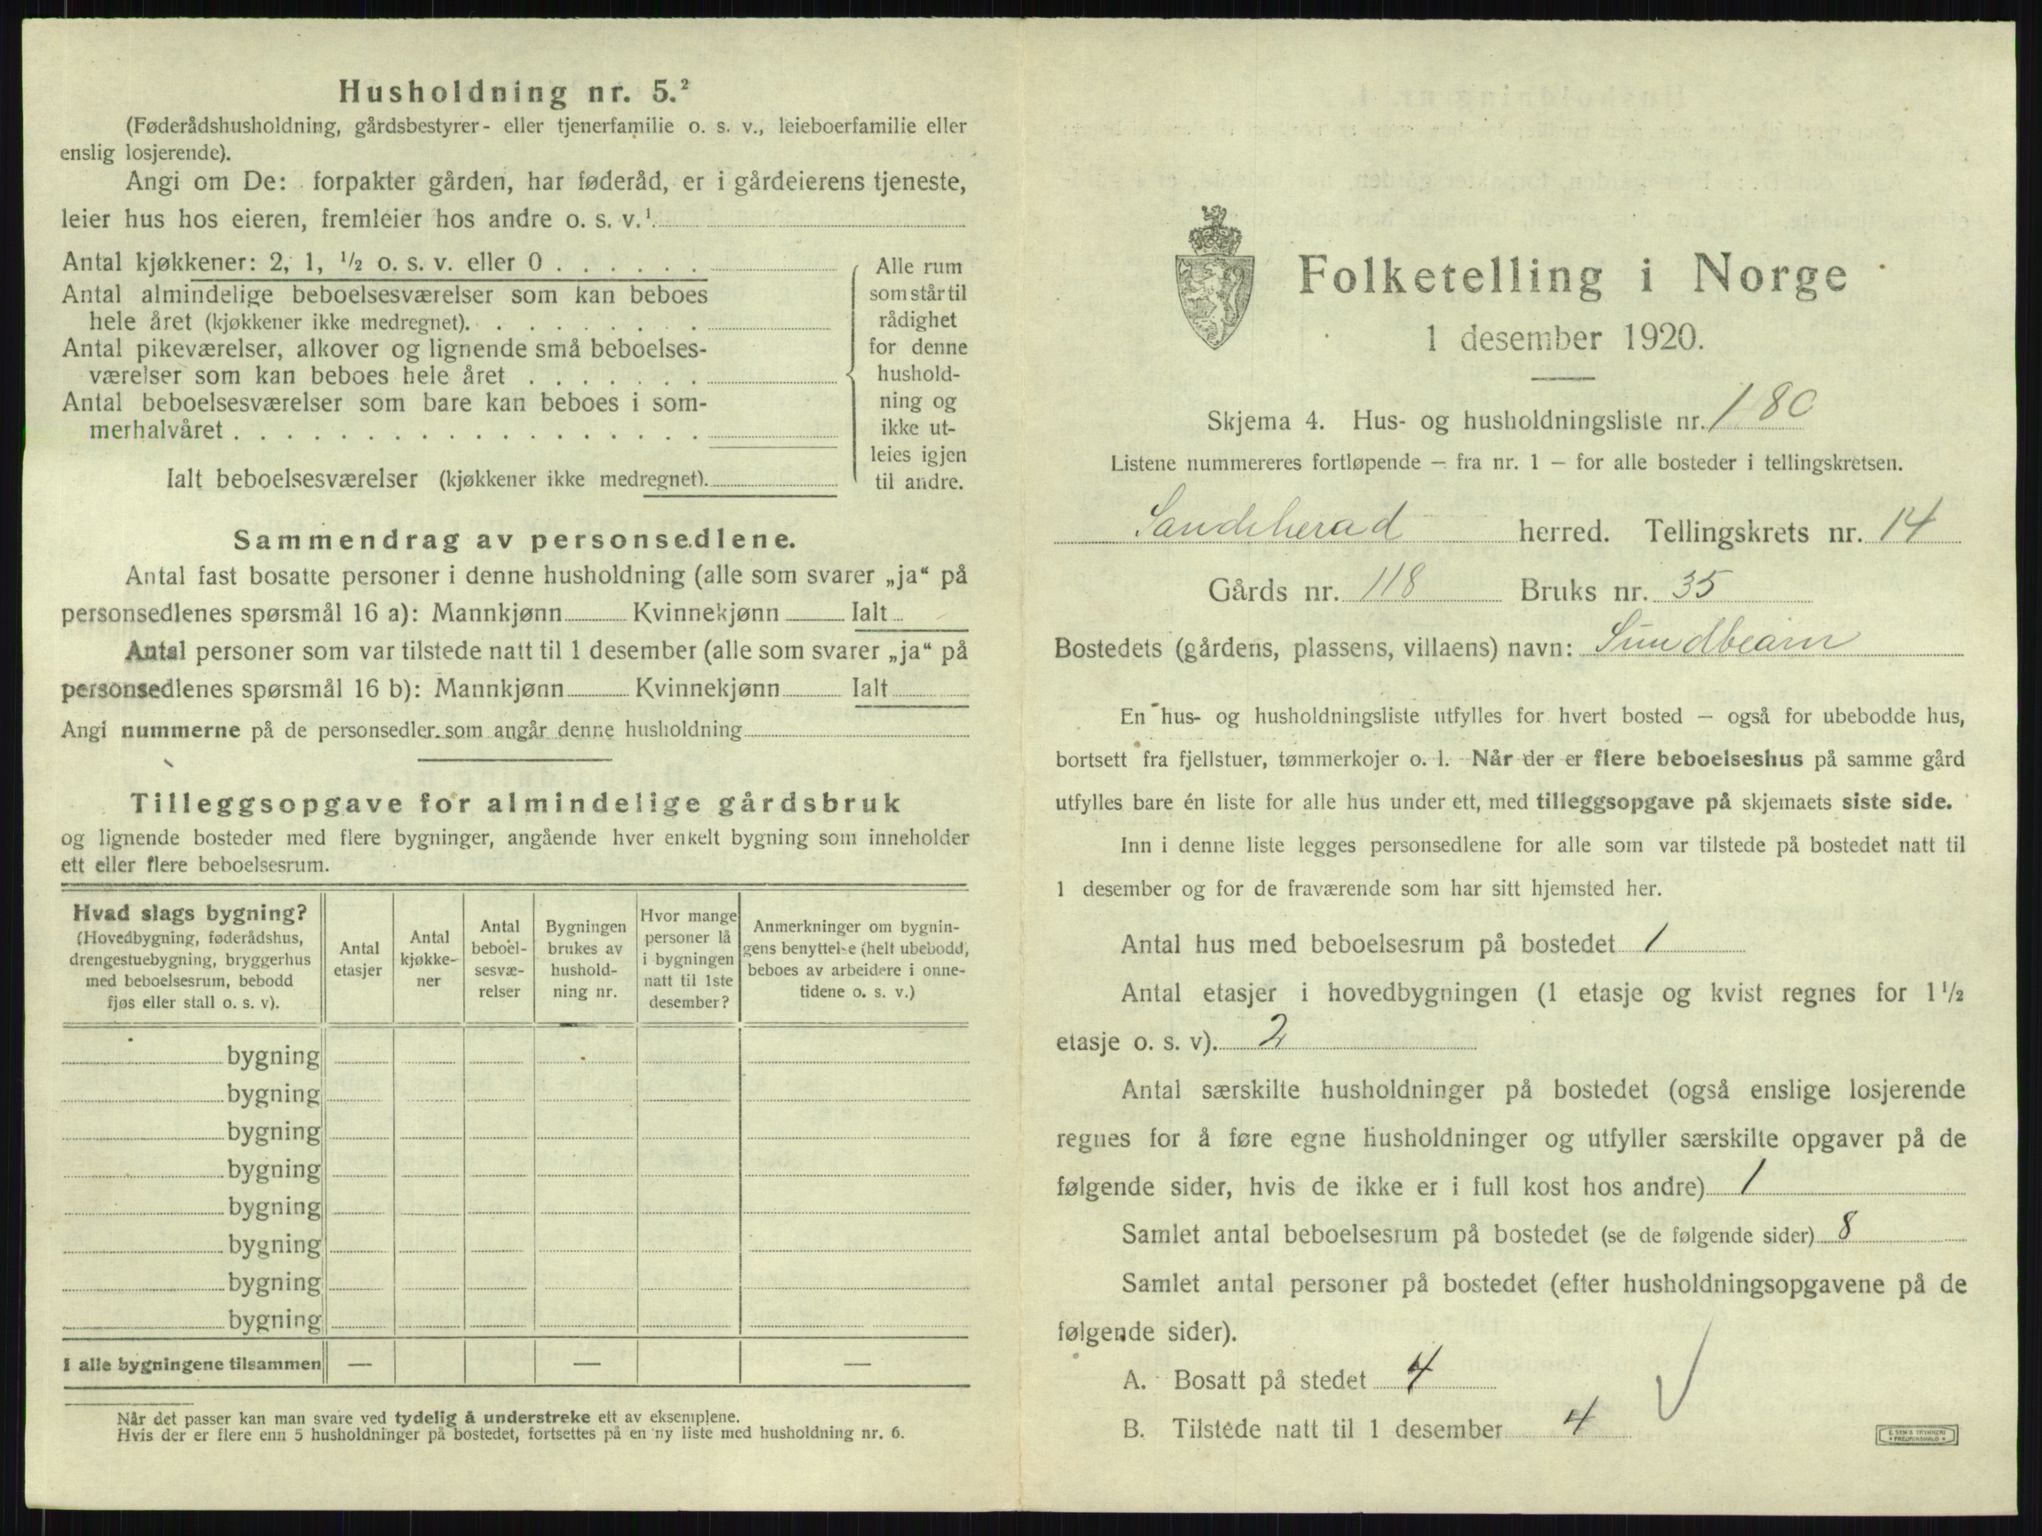 Husholdning nr. 5.²
(Føderådshusholdning, gårdsbestyrer- eller tjenerfamilie o. s. v., leieboerfamilie eller
enslig losjerende).
Angi om De: forpakter gården, har føderåd, er i gårdeierens tjeneste,
leier hus hos eieren, fremleier hos andre o. s. v.¹
Antal kjøkkener: 2, 1, ½ o. s. v. eller 0 . . . . . .
Antal almindelige beboelsesværelser som kan beboes
hele året (kjøkkener ikke medregnet). . . . . . . . .
Antal pikeværelser, alkover og lignende små beboelses-
værelser som kan beboes hele året . . . . . . .
Antal beboelsesværelser som bare kan beboes i som-
merhalvåret . . . . . . . . . . . . . . . . . .
Ialt beboelsesværelser (kjøkkener ikke medregnet).
Alle rum
som står til
rådighet
for denne
hushold-
ning og
ikke ut-
leies igjen
til andre.
Sammendrag av personsedlene.
Antal fast bosatte personer i denne husholdning (alle som svarer „ja“ på
personsedlenes spørsmål 16 a): Mannkjønn Kvinnekjønn Ialt
Antal personer som var tilstede natt til 1 desember (alle som svarer „ja“ på
personsedlenes spørsmål 16 b): Mannkjønn Kvinnekjønn Ialt
Angi nummerne på de personsedler som angår denne husholdning
Tilleggsopgave for almindelige gårdsbruk
og lignende bosteder med flere bygninger, angående hver enkelt bygning som inneholder
ett eller flere beboelsesrum.
Hvad slags bygning?
(Hovedbygning, føderådshus,
drengestuebygning, bryggerhus
med beboelsesrum, bebodd
fjøs eller stall o. s. v).
Antal
etasjer
Antal
kjøkke-
ner
Antal
beboel-
sesvæ-
relser
Bygningen
brukes av
hushold-
ning nr.
Hvor mange
personer lå
i bygningen
natt til 1ste
desember?
Anmerkninger om bygnin-
gens benyttelse (helt ubebodd,
beboes av arbeidere i onne-
tidene o. s. v.)
bygning
bygning
bygning
bygning
bygning
bygning
bygning
bygning
I alle bygningene tilsammen — — —
Når det passer kan man svare ved tydelig å understreke ett av eksemplene.
Hvis der er flere enn 5 husholdninger på bostedet, fortsettes på en ny liste med husholdning nr. 6.
Folketelling i Norge
1 desember 1920.
Skjema 4. Hus- og husholdningsliste nr. 180
Listene nummereres fortløpende — fra nr. 1 — for alle bosteder i tellingskretsen.
Sandeherad herred. Tellingskrets nr. 14
Gårds nr. 118 Bruks nr. 35
Bostedets (gårdens, plassens, villaens) navn: Sundbeam
En hus- og husholdningsliste utfylles for hvert bosted — også for ubebodde hus,
bortsett fra fjellstuer, tømmerkojer o. l. Når der er flere beboelseshus på samme gård
utfylles bare én liste for alle hus under ett, med tilleggsopgave på skjemaets siste side.
Inn i denne liste legges personsedlene for alle som var tilstede på bostedet natt til
1 desember og for de fraværende som har sitt hjemsted her.
Antal hus med beboelsesrum på bostedet 1
Antal etasjer i hovedbygningen (1 etasje og kvist regnes for 1½
etasje o. s. v). 2
Antal særskilte husholdninger på bostedet (også enslige losjerende
regnes for å føre egne husholdninger og utfyller særskilte opgaver på de
følgende sider, hvis de ikke er i full kost hos andre) 1
Samlet antal beboelsesrum på bostedet (se de følgende sider) 8
Samlet antal personer på bostedet (efter husholdningsopgavene på de
følgende sider).
A. Bosatt på stedet 4
B. Tilstede natt til 1 desember 4